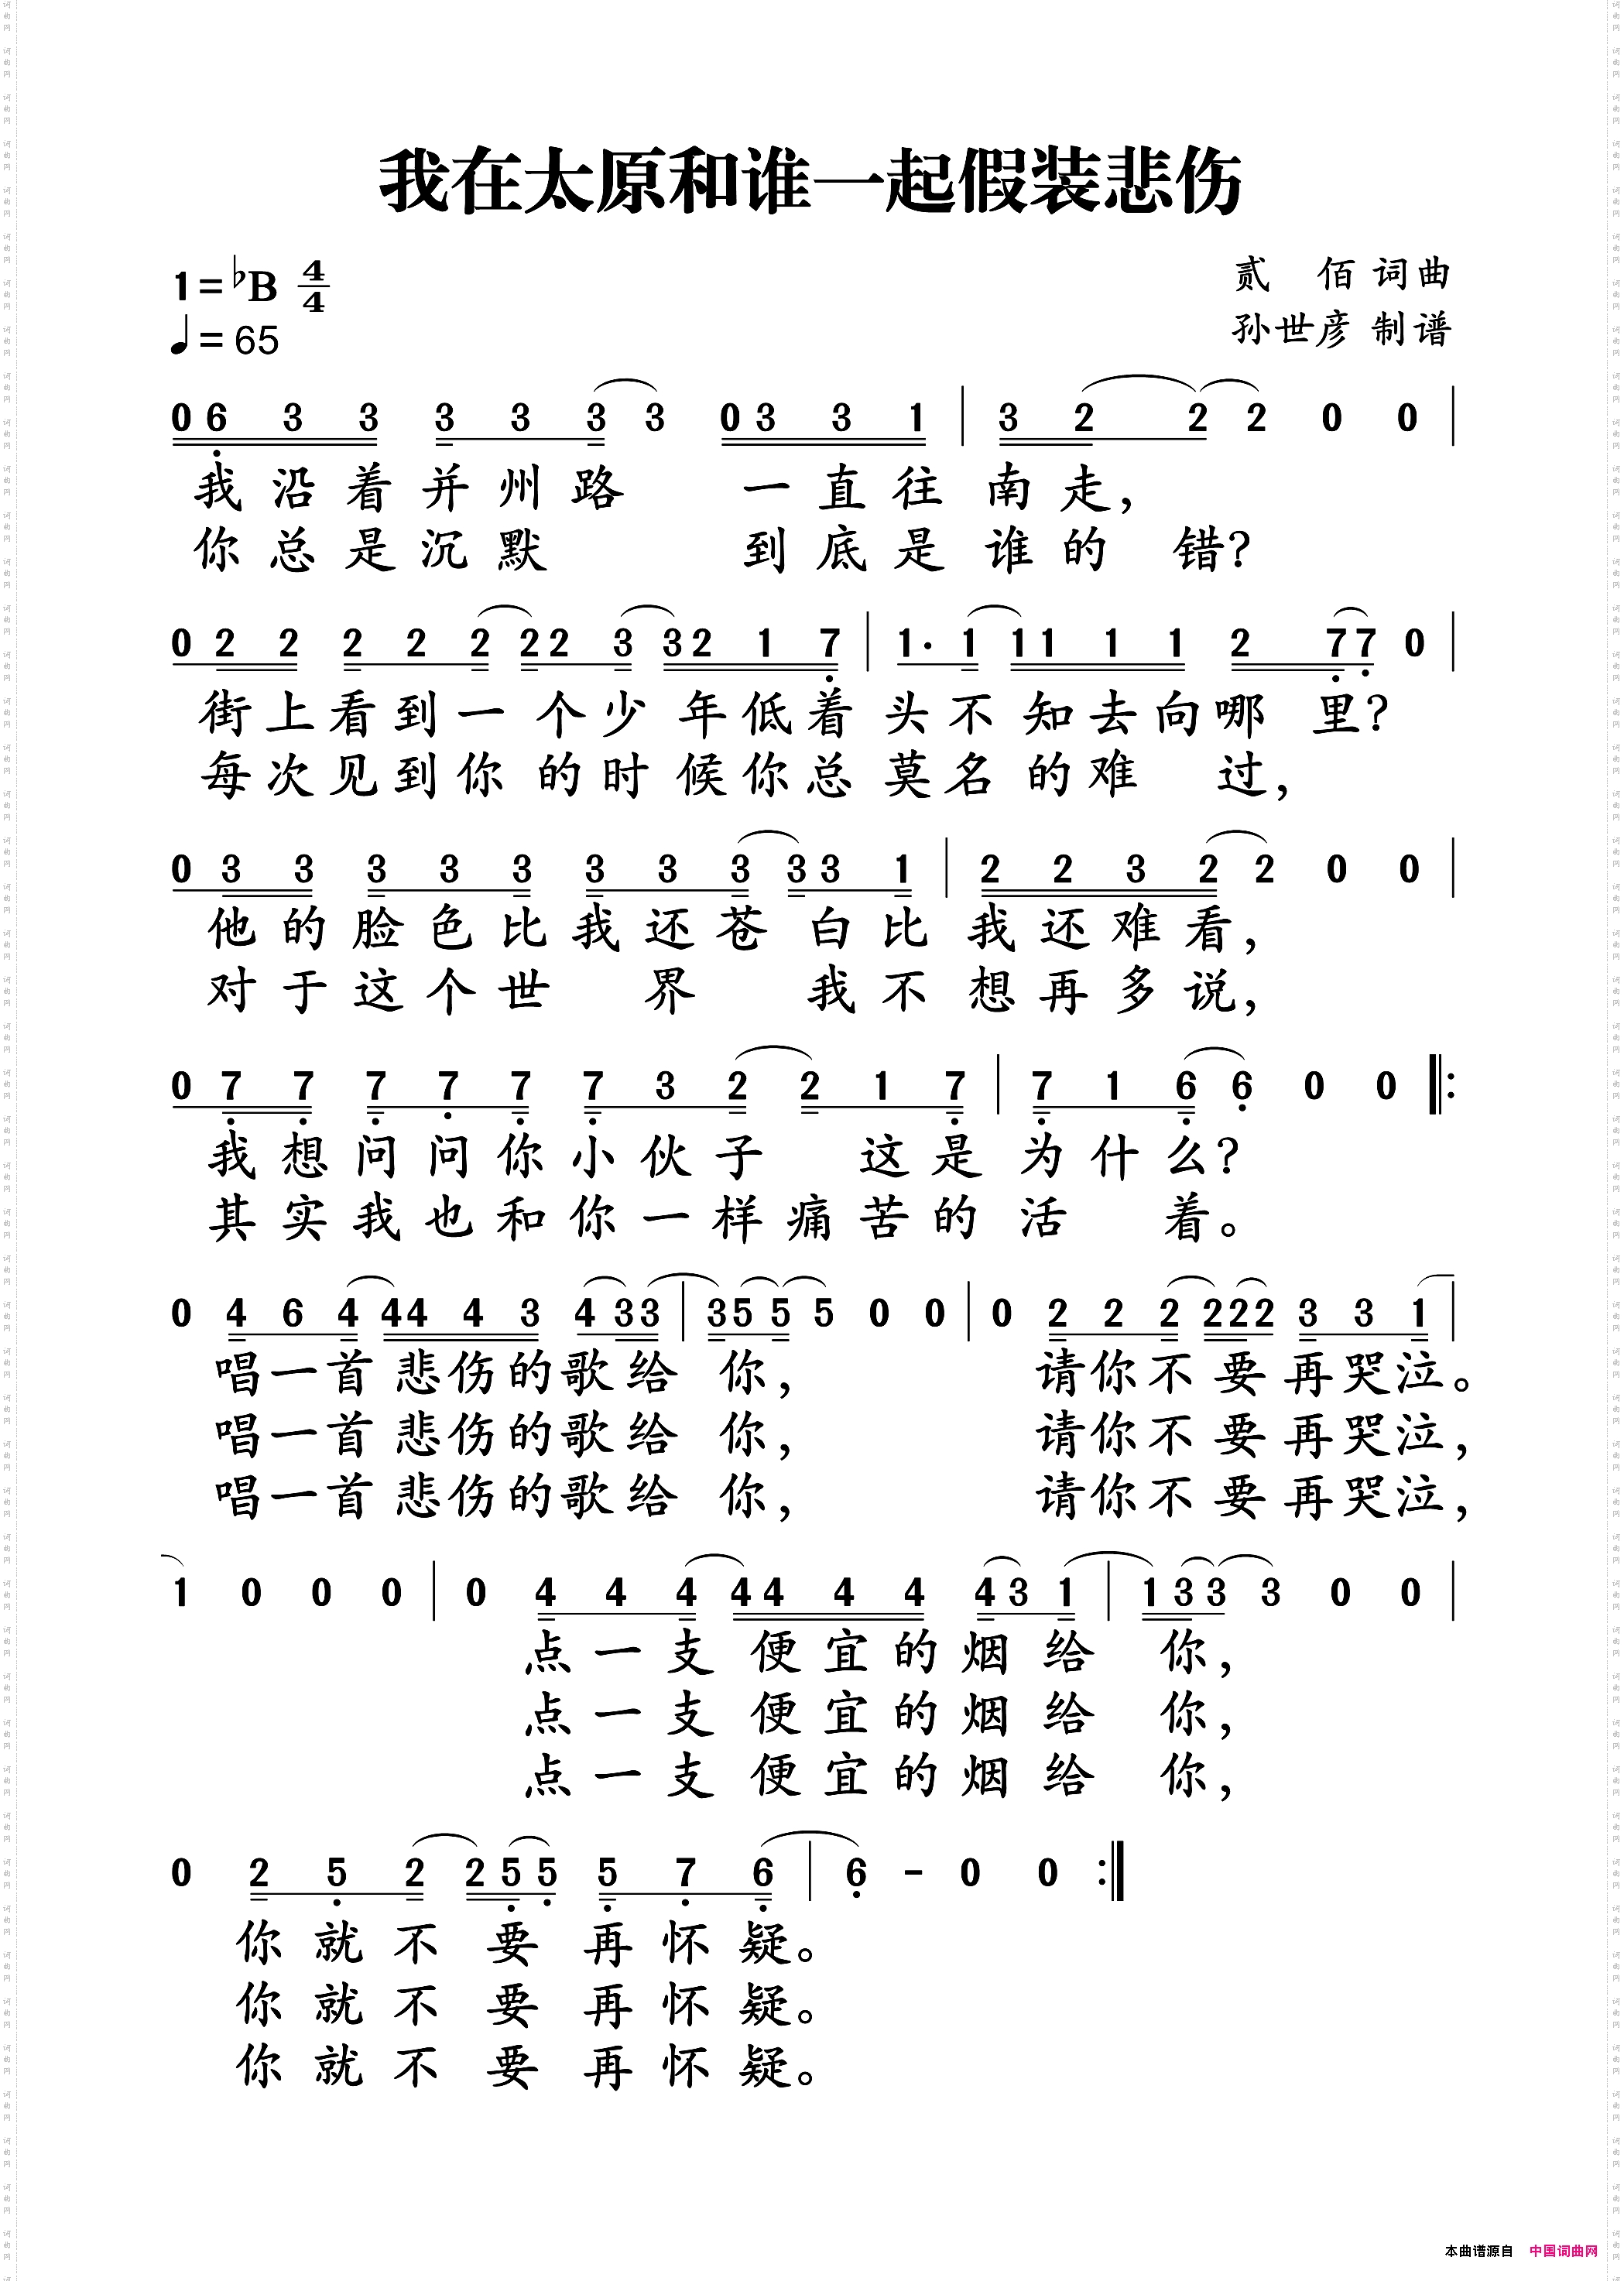 我在太原和谁一起假装悲伤
1=♭B 4/4
贰 佰 词曲
♩=65
孙世彦 制谱
0 6 3 3 3 3 3 3 0 3 3 1 | 3 2 2 2 0 0 |
我沿着并州路 一直往南走，
你总是沉默 到底是谁的 错？
0 2 2 2 2 2 2 2 3 3 2 1 7 | 1· 1 1 1 1 1 2 7 7 0 |
街上看到一个少年低着头不知去向哪里？
每次见到你的时候你总莫名的难 过，
0 3 3 3 3 3 3 3 3 3 3 1 | 2 2 3 2 2 0 0 |
他的脸色比我还苍白比我还难看，
对于这个世 界 我不想再多说，
0 7 7 7 7 7 7 3 2 2 1 7 | 7 1 6 6 0 0 |:
我想问问你小伙子 这是为什么？
其实我也和你一样痛苦的活 着。
0 4 6 4 4 4 4 3 4 3 3 | 3 5 5 5 0 0 | 0 2 2 2 2 2 2 3 3 1 |
唱一首悲伤的歌给 你， 请你不要再哭泣。
唱一首悲伤的歌给 你， 请你不要再哭泣，
唱一首悲伤的歌给 你， 请你不要再哭泣，
1 0 0 0 | 0 4 4 4 4 4 4 4 4 3 1 | 1 3 3 3 0 0 |
点一支便宜的烟给 你，
点一支便宜的烟给 你，
点一支便宜的烟给 你，
0 2 5 2 2 5 5 5 7 6 | 6 - 0 0 :|
你就不要再怀疑。
你就不要再怀疑。
你就不要再怀疑。
本曲谱源自 中国词曲网